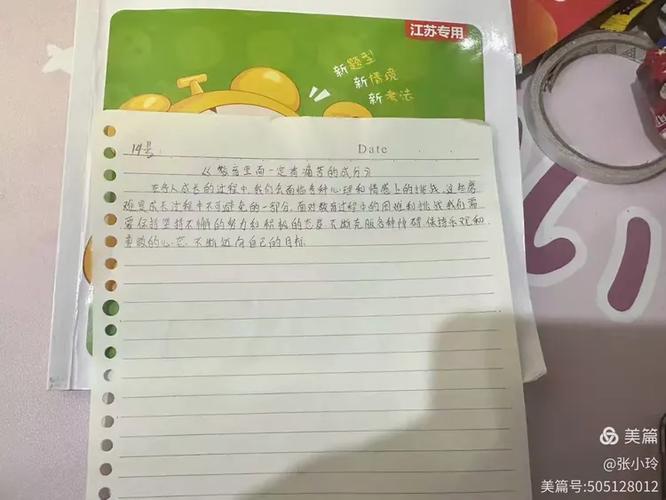 江苏专用
新题型
新情境
新考法
14号
Date
《教育里面一定有痛苦的成分》
在每人成长的过程中,我们会面临各种心理和情感上的挑战,这些磨
难是成长过程中不可避免的一部分,面对教育过程中的困难和挑战我们需
要保持坚持不懈的努力和积极的态度,不断克服各种障碍,保持乐观和
勇敢的心态,不断迈向自己的目标.
美篇
@张小玲
美篇号:505128012